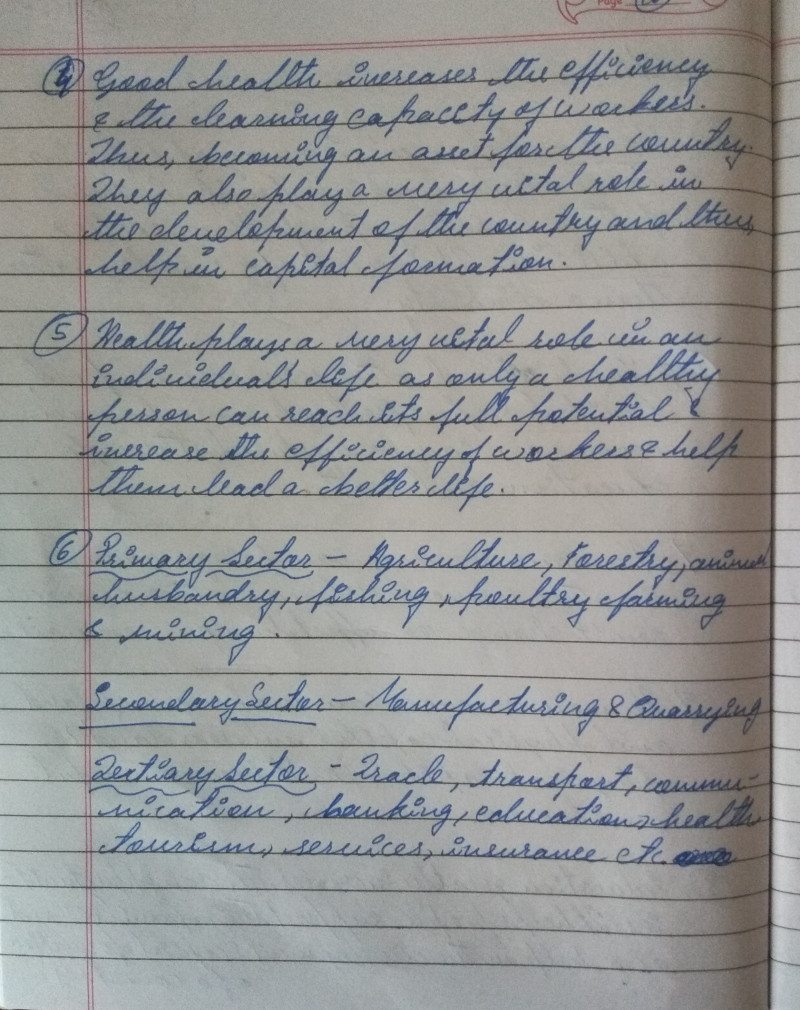 Page
④ Good health increases the efficiency
& the learning capacity of workers.
Thus, becoming an asset for the country.
They also play a very vital role in
the development of the country and thus,
help in capital formation.
⑤ Health plays a very vital role in an
individual's life as only a healthy
person can reach its full potential &
increase the efficiency of workers & help
them lead a better life.
⑥ Primary Sector – Agriculture, Forestry, animal
husbandry, fishing, poultry farming
& mining.
Secondary Sector – Manufacturing & Quarrying
Tertiary Sector - Trade, transport, commu-
nication, banking, education, health
tourism, services, insurance etc.